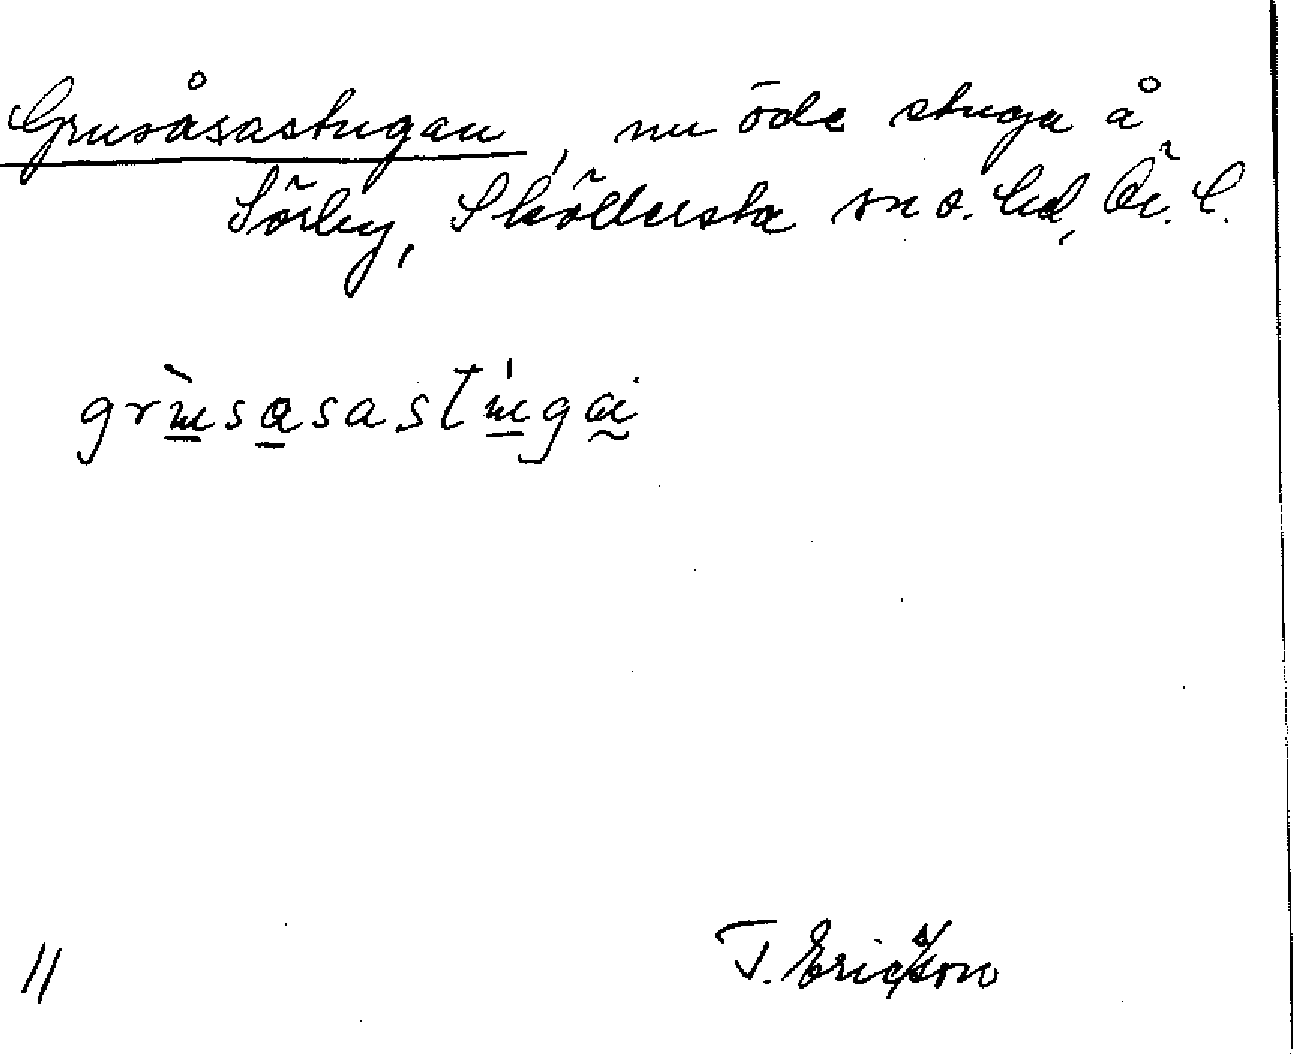 Grusåsastugan, nu öde stuga å
Sörby, Sköllersta sn o. hd, Ör. l.
grùsasastúga
11
T. Ericsson